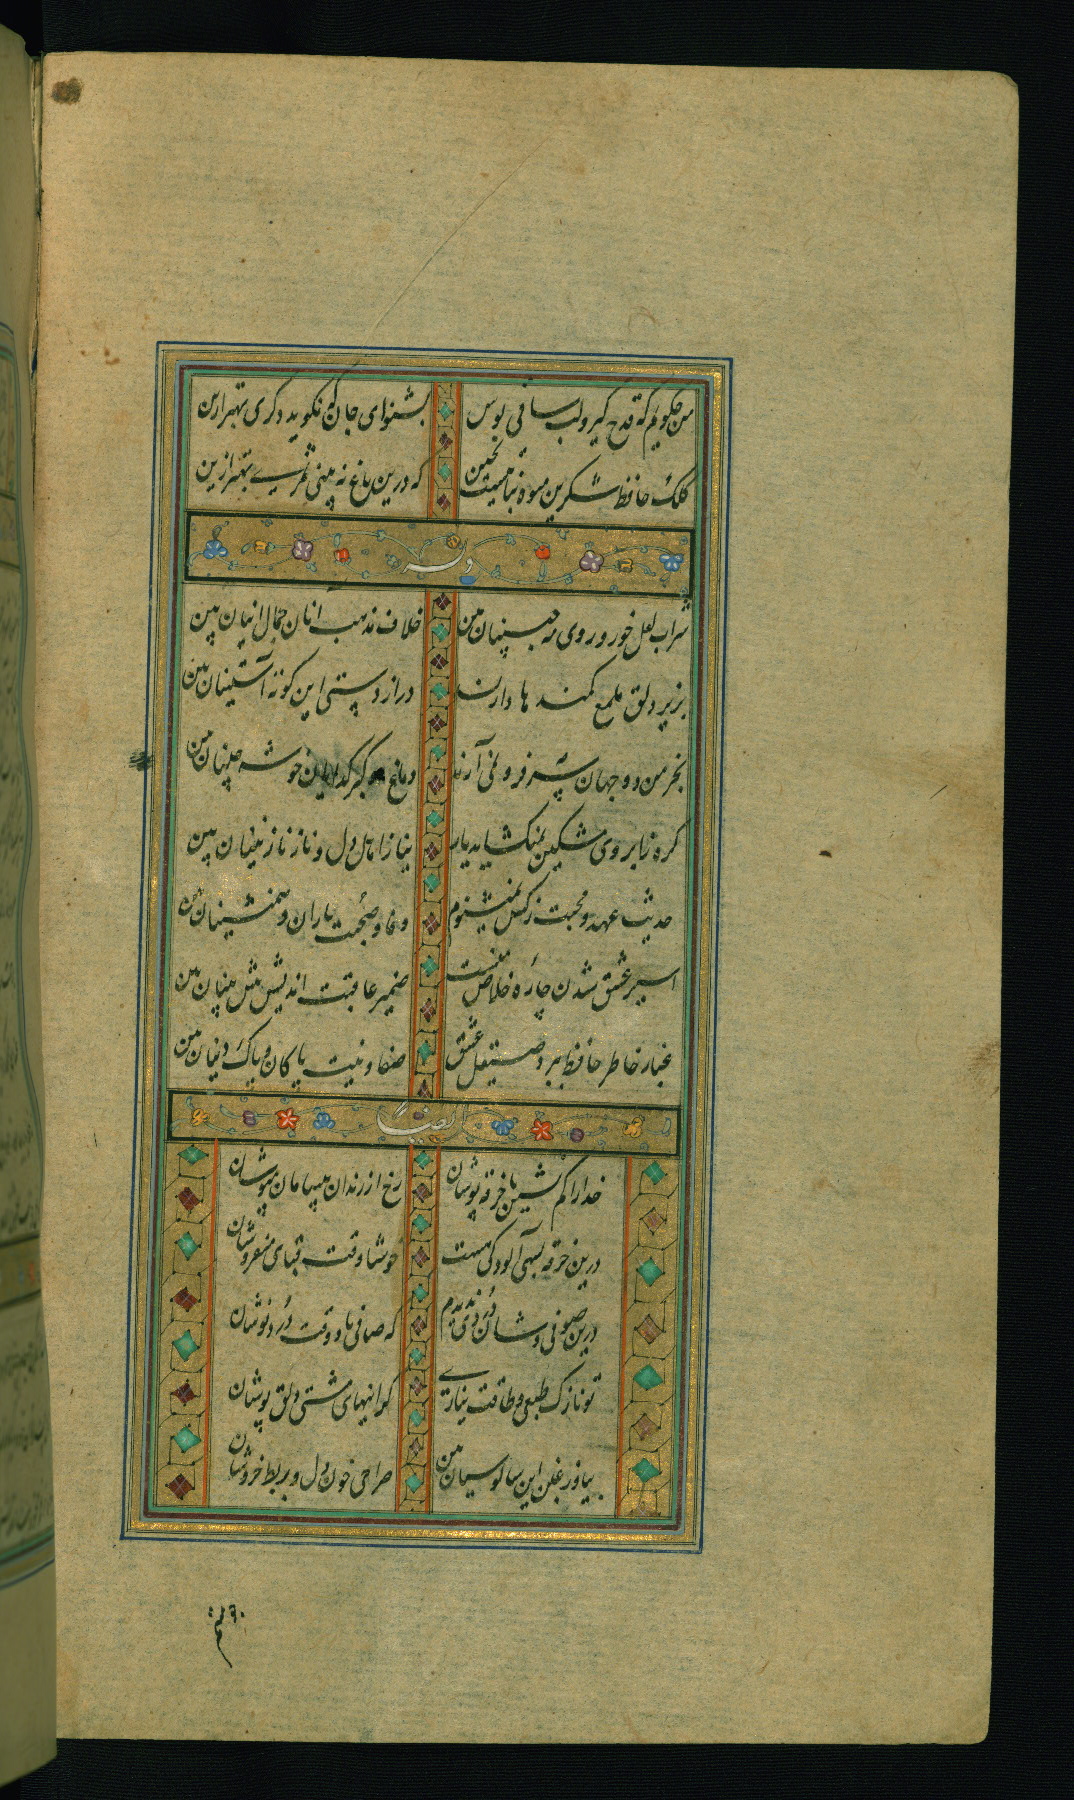 من چکویم که قدح کیر و لب ساقی بوس بشنو ای جان که نکوید دکری بهتر ازین
کلک حافظ شکرین میوه نباتیست بچین که درین باغ نه بینی ثمری بهتر ازین
وله
شراب لعل خور و روی مه جبینان بین خلاف مذهب آنان جمال اینان بین
بزیر دلق ملمع کمندها دارند دراز دستی این کوته آستینان بین
بخرمن دو جهان سر فرو نمی آرند دماغ کبر کدایان خوشه چینان بین
کره ز ابروی مشکین نمیکشاید یار نیاز اهل دل و ناز نازنینان بین
حدیث عهد و محبت ز کس نمیشنوم وفا و صحبت یاران و همنشینان بین
اسیر عشق شدن چاره خلاص منست ضمیر عاقبت اندیش پیش بینان بین
غبار خاطر حافظ ببرد صیقل عشق صفا و نیت پاکان و پاک دینان بین
ایضا
خدا را کم نشین با خرقه پوشان رخ از رندان بی سامان مپوشان
درین خرقه بسی آلودکی هست خوشا وقت قبای میفروشان
درین صوفی وشان دردی ندیدم که صافی باد وقت درد نوشان
تو نازک طبعی و طاقت نیاری کرانیهای مشتی دلق پوشان
بیا و ز غبن این سالوسیان بین صراحی خون دل و بربط خروشان